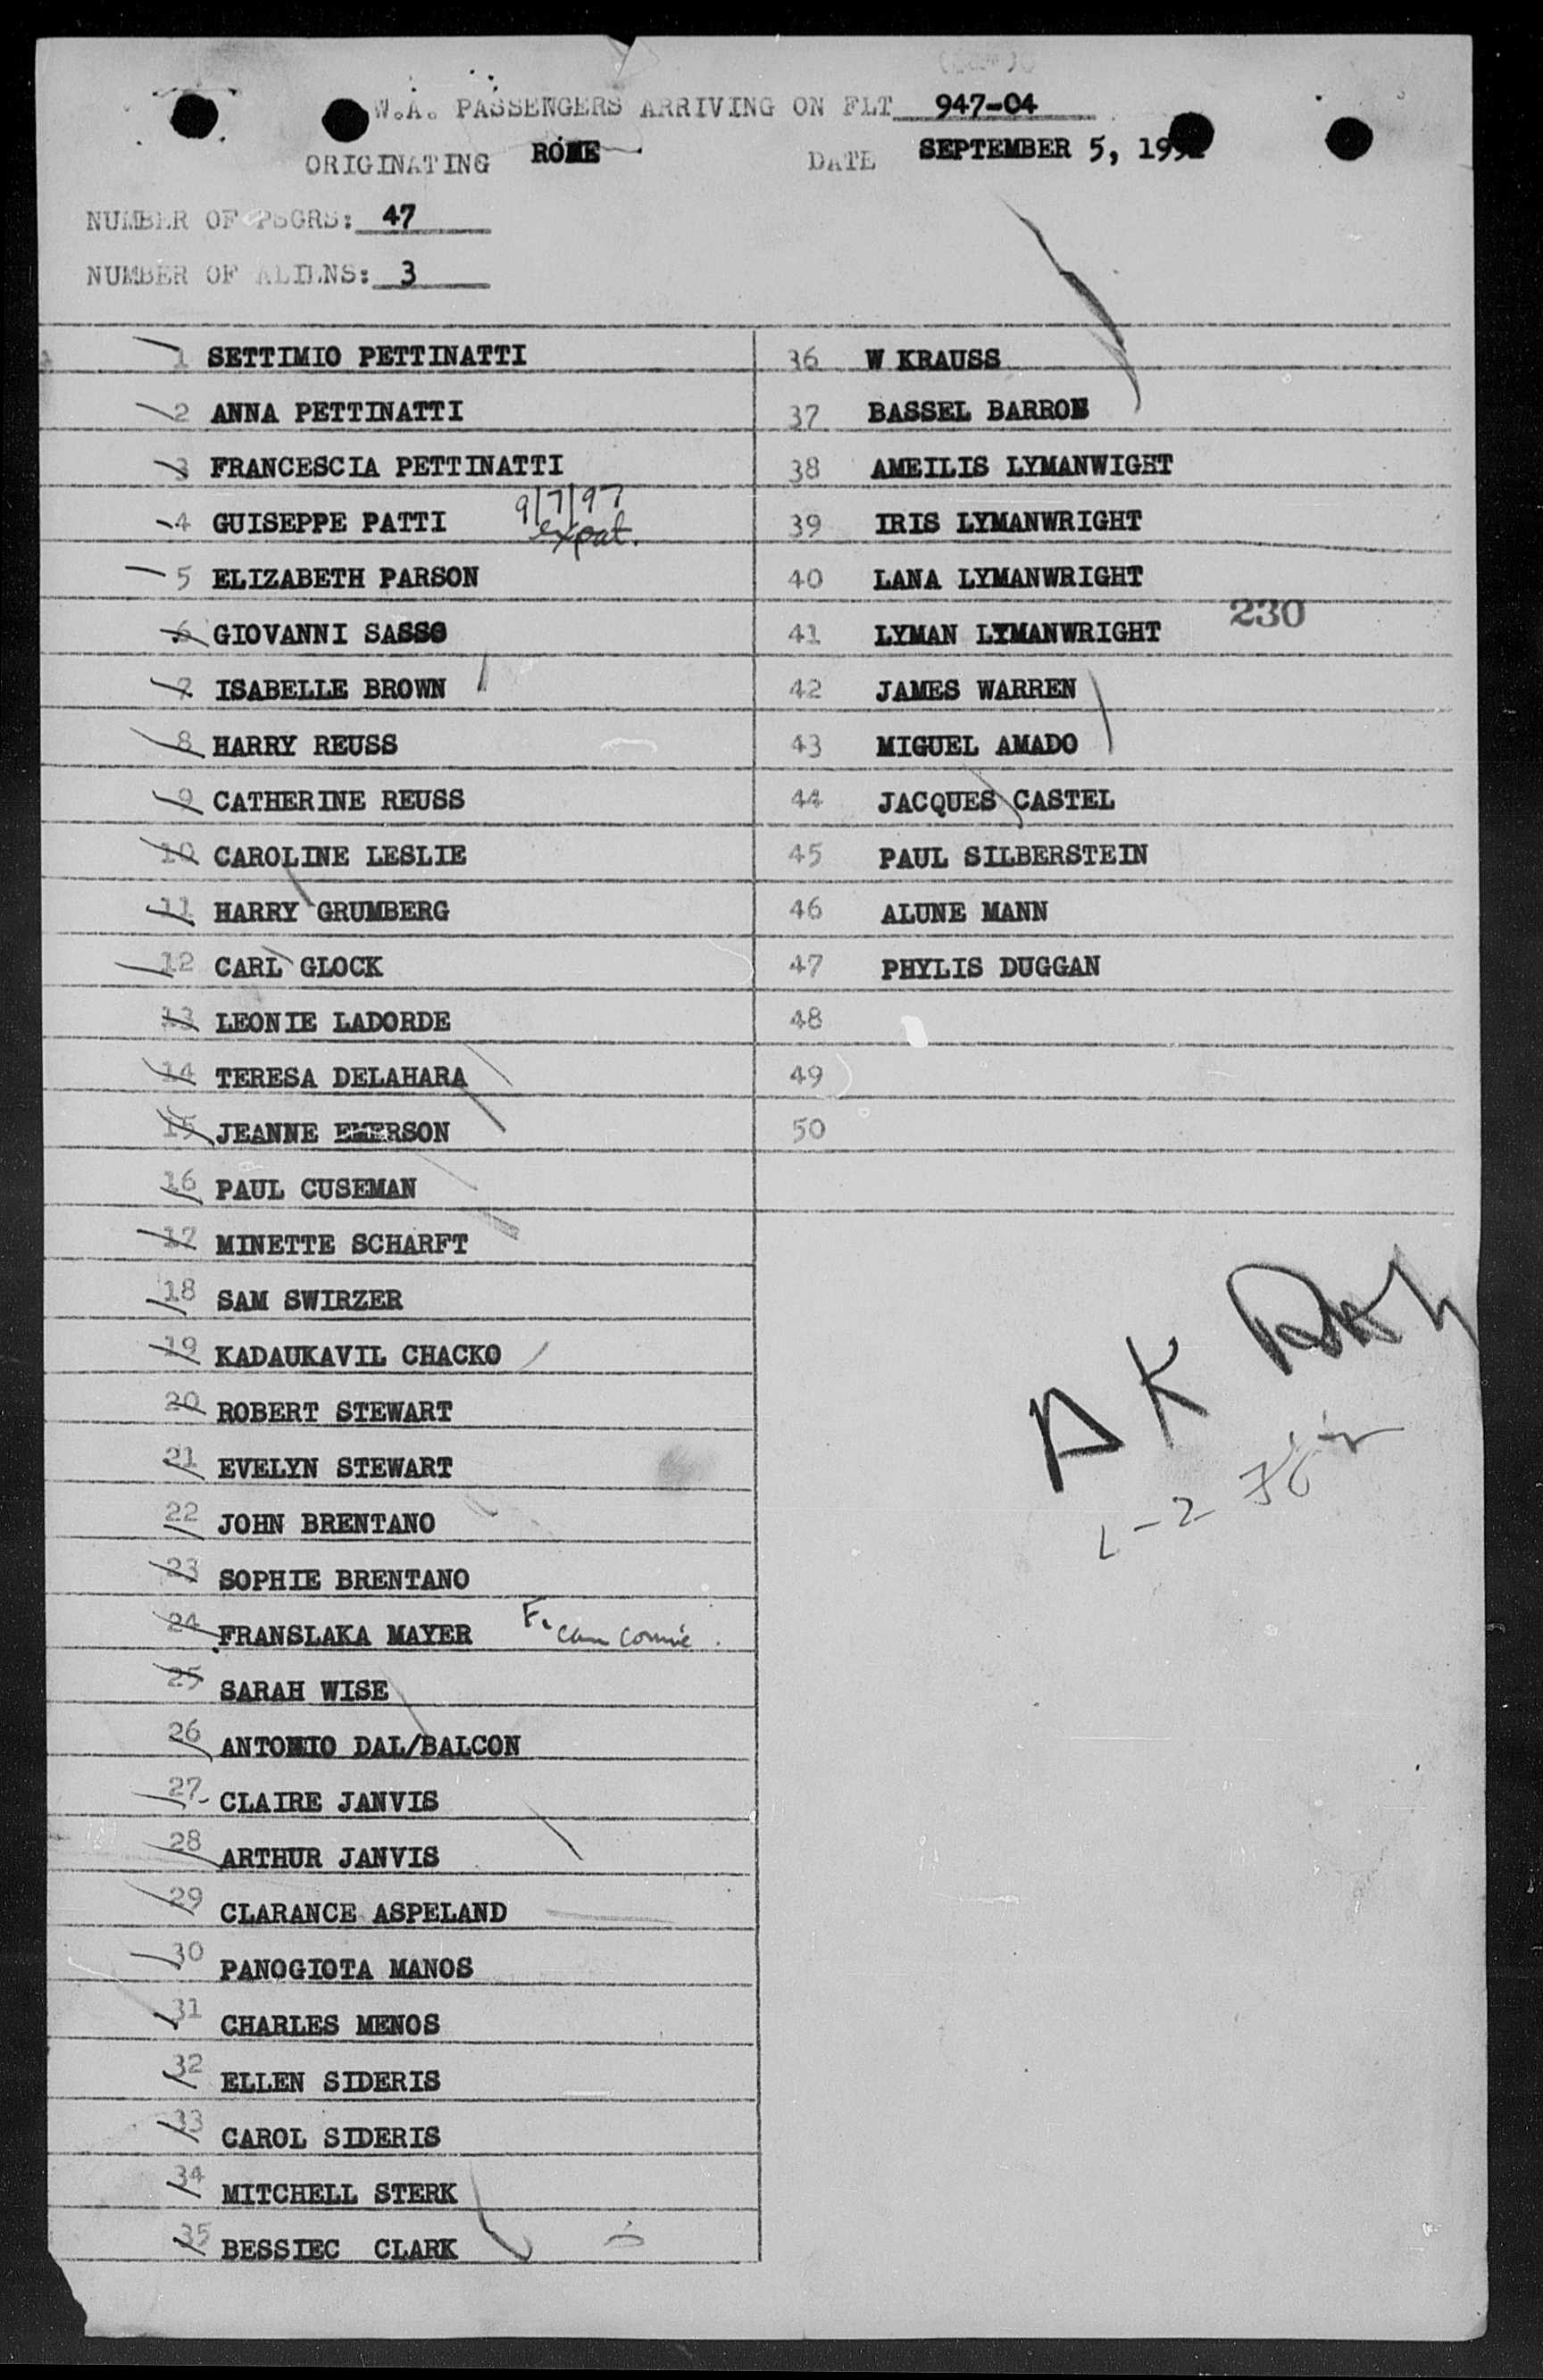 W.A. PASSENGERS ARRIVING ON FLT 947-04
ORIGINATING ROME DATE SEPTEMBER 5, 195
NUMBER OF PSGRS: 47
NUMBER OF ALIENS: 3
1 SETTIMIO PETTINATTI
2 ANNA PETTINATTI
3 FRANCESCIA PETTINATTI
4 GUISEPPE PATTI 9/7/97 expat.
5 ELIZABETH PARSON
6 GIOVANNI SASSO
7 ISABELLE BROWN
8 HARRY REUSS
9 CATHERINE REUSS
10 CAROLINE LESLIE
11 HARRY GRUMBERG
12 CARL GLOCK
13 LEONIE LADORDE
14 TERESA DELAHARA
15 JEANNE EMERSON
16 PAUL CUSEMAN
17 MINETTE SCHARFT
18 SAM SWIRZER
19 KADAUKAVIL CHACKO
20 ROBERT STEWART
21 EVELYN STEWART
22 JOHN BRENTANO
23 SOPHIE BRENTANO
24 FRANSLAKA MAYER
25 SARAH WISE
26 ANTONIO DAL/BALCON
27 CLAIRE JANVIS
28 ARTHUR JANVIS
29 CLARANCE ASPELAND
30 PANOGIOTA MANOS
31 CHARLES MENOS
32 ELLEN SIDERIS
33 CAROL SIDERIS
34 MITCHELL STERK
35 BESSIEC CLARK
36 W KRAUSS
37 BASSEL BARRON
38 AMEILIS LYMANWIGHT
39 IRIS LYMANWRIGHT
40 LANA LYMANWRIGHT
230
41 LYMAN LYMANWRIGHT
42 JAMES WARREN
43 MIGUEL AMADO
44 JACQUES CASTEL
45 PAUL SILBERSTEIN
46 ALUNE MANN
47 PHYLIS DUGGAN
48
49
50